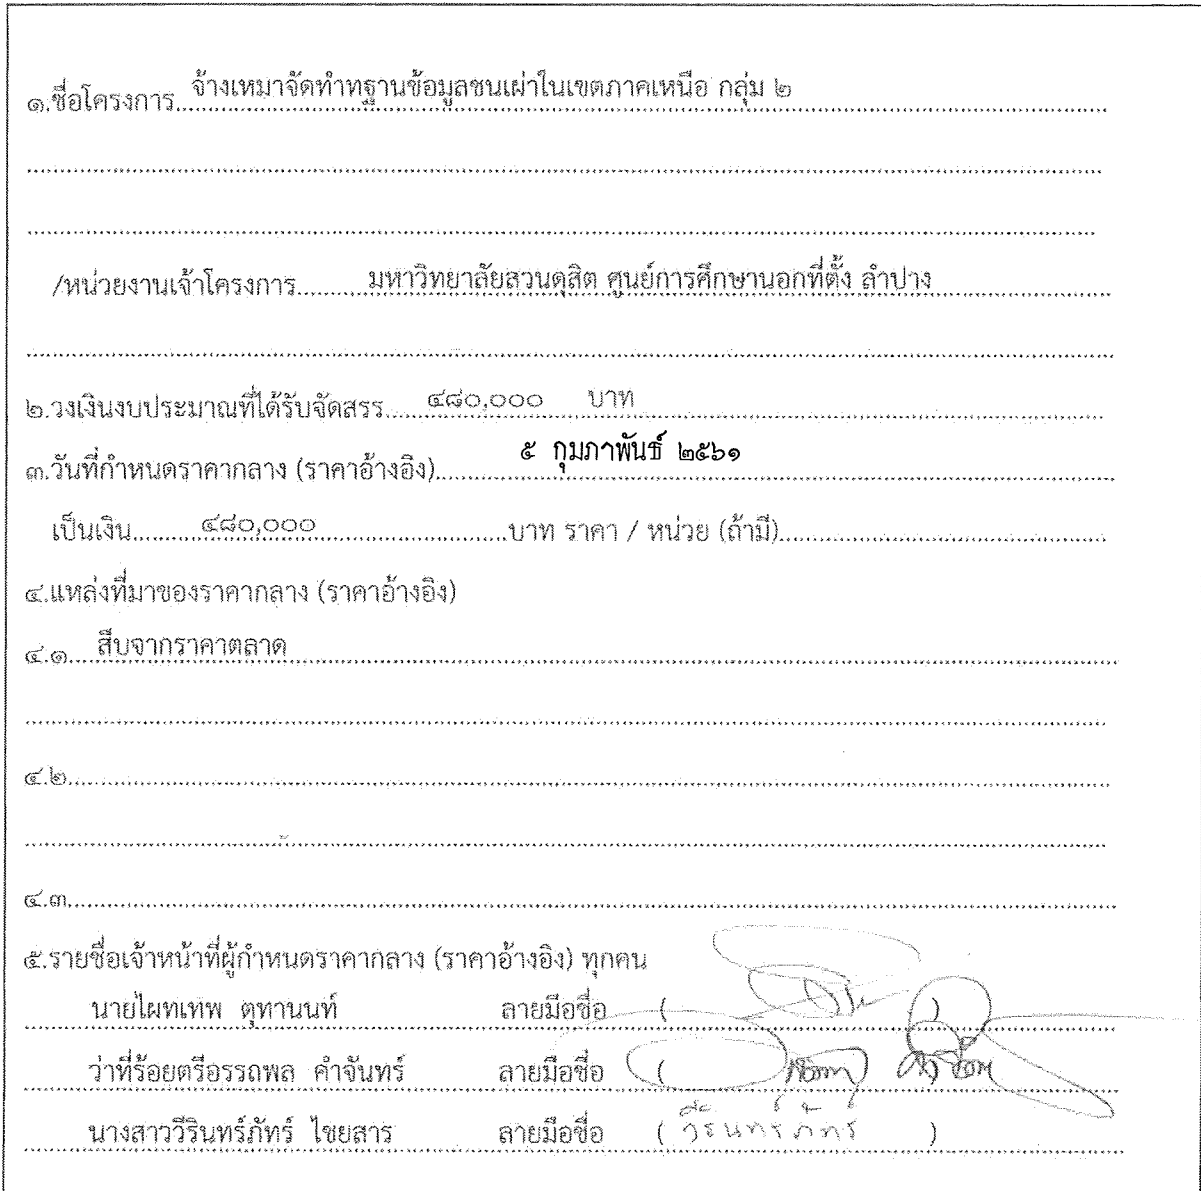 ๑.ชื่อโครงการ จ้างเหมาจัดทำทฐานข้อมูลชนเผ่าในเขตภาคเหนือ กลุ่ม ๒
/หน่วยงานเจ้าโครงการ มหาวิทยาลัยสวนดุสิต ศูนย์การศึกษานอกที่ตั้ง ลำปาง
๒.วงเงินงบประมาณที่ได้รับจัดสรร ๔๘๐,๐๐๐ บาท
๓.วันที่กำหนดราคากลาง (ราคาอ้างอิง) ๕ กุมภาพันธ์ ๒๕๖๑
เป็นเงิน ๔๘๐,๐๐๐ บาท ราคา / หน่วย (ถ้ามี)
๔.แหล่งที่มาของราคากลาง (ราคาอ้างอิง)
๔.๑ สืบจากราคาตลาด
๔.๒
๔.๓
๕.รายชื่อเจ้าหน้าที่ผู้กำหนดราคากลาง (ราคาอ้างอิง) ทุกคน
นายไผทเทพ ตุทานนท์ ลายมือชื่อ ( )
ว่าที่ร้อยตรีอรรถพล คำจันทร์ ลายมือชื่อ ( )
นางสาววีรินทร์ภัทร์ ไชยสาร ลายมือชื่อ ( วีรินทร์ภัทร์ )